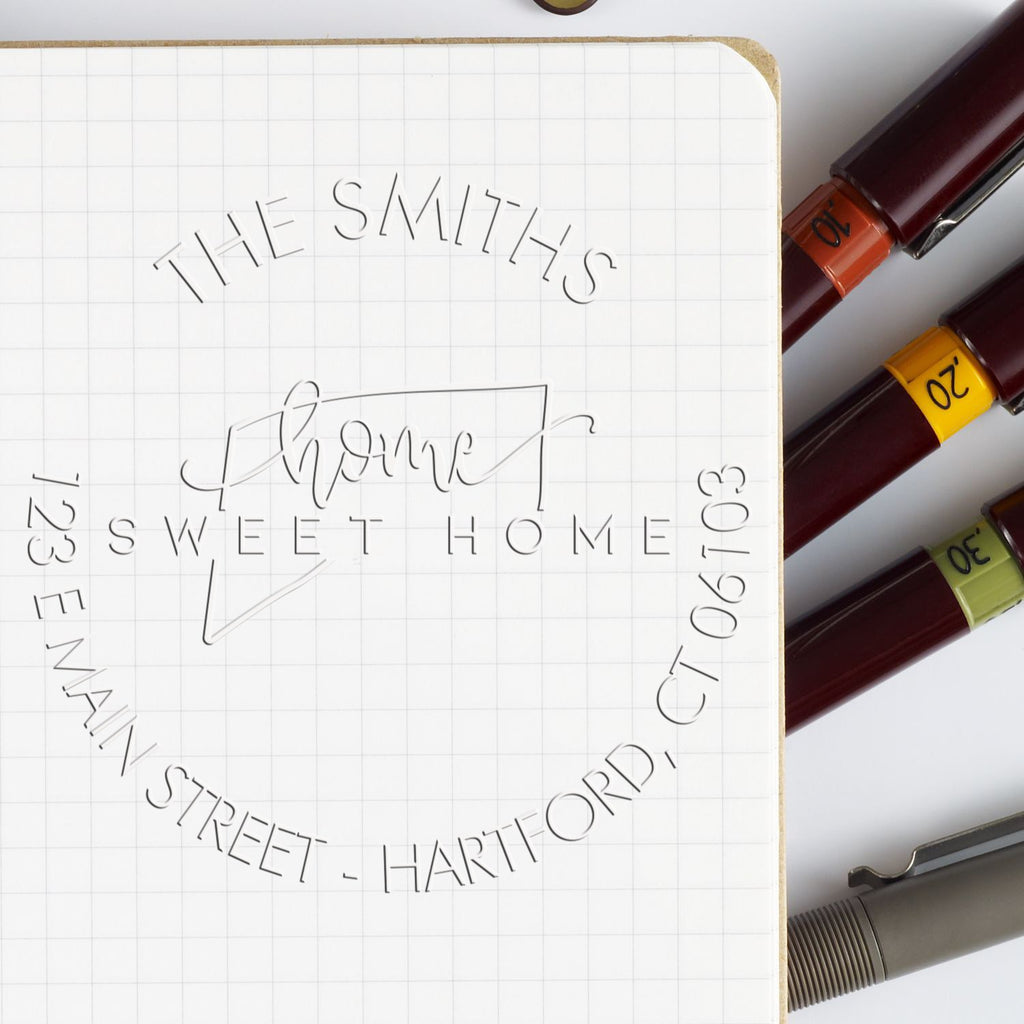 THE SMITHS
home
SWEET HOME
123 E MAIN STREET - HARTFORD, CT 06103
.10
.20
.30